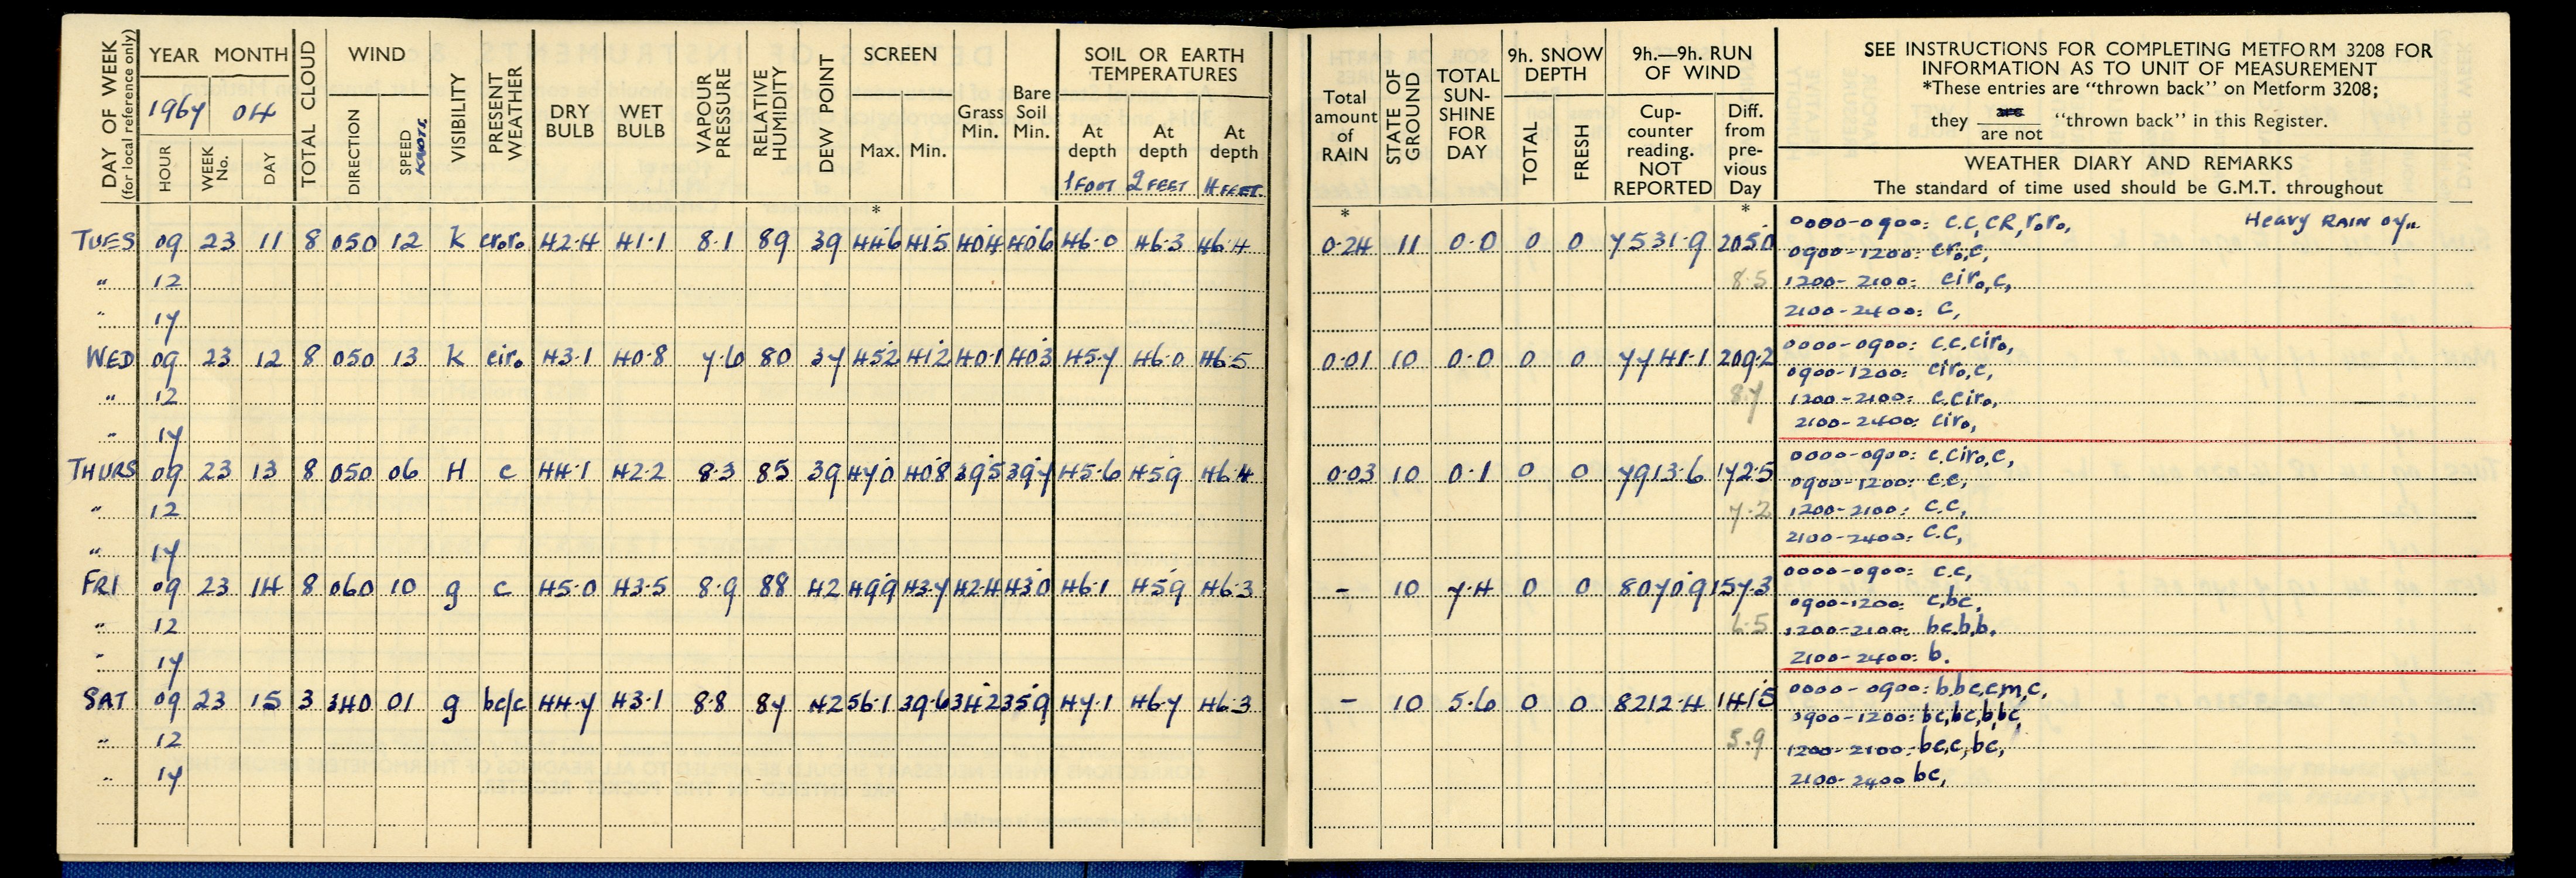 DAY OF WEEK (for local reference only)
YEAR MONTH
1967 04
HOUR WEEK No. DAY
TOTAL CLOUD
WIND
DIRECTION SPEED KNOTS.
VISIBILITY
PRESENT WEATHER
DRY BULB
WET BULB
VAPOUR PRESSURE
RELATIVE HUMIDITY
DEW POINT
SCREEN
Max. Min.
Grass Min.
Bare Soil Min.
SOIL OR EARTH TEMPERATURES
At depth 1 FOOT At depth 2 FEET At depth 4 FEET.
Total amount of RAIN
STATE OF GROUND
TOTAL SUN-SHINE FOR DAY
9h. SNOW DEPTH
TOTAL FRESH
9h.—9h. RUN OF WIND
Cup-counter reading. NOT REPORTED
Diff. from pre-vious Day
SEE INSTRUCTIONS FOR COMPLETING METFORM 3208 FOR
INFORMATION AS TO UNIT OF MEASUREMENT
*These entries are "thrown back" on Metform 3208;
they are / are not "thrown back" in this Register.
WEATHER DIARY AND REMARKS
The standard of time used should be G.M.T. throughout
* * *
TUES 09 23 11 8 050 12 K croro 42.4 41.1 8.1 89 39 446 415 404 406 46.0 46.3 46.4 0.24 11 0.0 0 0 7531.9 205.0 0000-0900: c.c,cR,roro, Heavy RAIN 07..
0900-1200: cro,c,
" 12 8.5 1200-2100: ciro,c,
" 17 2100-2400: c,
WED 09 23 12 8 050 13 K ciro 43.1 40.8 7.6 80 37 452 412 401 403 45.7 46.0 46.5 0.01 10 0.0 0 0 7741.1 209.2 0000-0900: c.c.ciro,
0900-1200: ciro,c,
" 12 8.7 1200-2100: c.ciro,
" 17 2100-2400: ciro,
THURS 09 23 13 8 050 06 H c 44.1 42.2 8.3 85 39 470 408 395 397 45.6 459 46.4 0.03 10 0.1 0 0 7913.6 172.5 0000-0900: c.ciro,c,
0900-1200: c.c,
" 12 7.2 1200-2100: c.c,
" 17 2100-2400: c.c,
FRI 09 23 14 8 060 10 g c 45.0 43.5 8.9 88 42 499 43.7 42.4 430 46.1 459 46.3 - 10 7.4 0 0 80709 157.3 0000-0900: c.c,
0900-1200: c,bc,
" 12 6.5 1200-2100: bc.b,b,
" 17 2100-2400: b.
SAT 09 23 15 3 340 01 g bc/c 44.7 43.1 8.8 87 42 56.1 39.6 342 359 47.1 46.7 46.3 - 10 5.6 0 0 8212.4 141.5 0000-0900: b,bc,cm,c,
0900-1200: bc,bc,b,bc,
" 12 5.9 1200-2100: bc,c,bc,
" 17 2100-2400 bc,